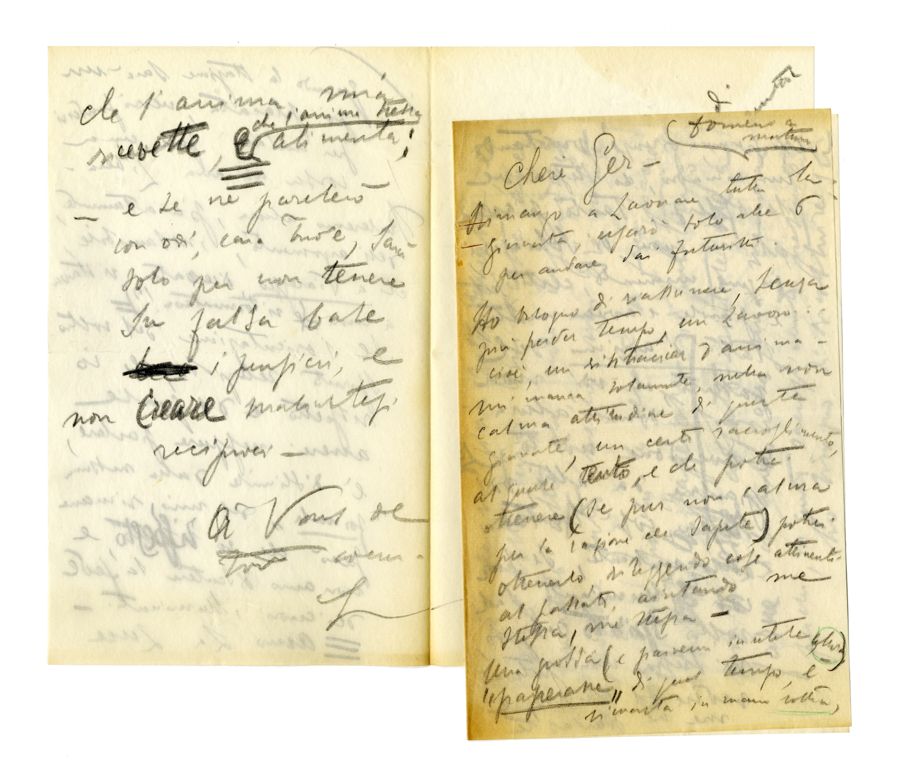 che l'anima mia
che l'anima stessa
ricevette, e alimenta!
— e se ne parlerò
con voi, cara
solo per non tenere
su falsa base
i giudizi, e
non creare malintesi
reciproci —
A Vous de
di
Domenica
mattina
Cheri Ger —
Rimango a lavorare tutta la
giornata, uscirò solo alle 6
per andare dai futuristi.
Ho bisogno di riassumere, senza
più perder tempo, un lavoro:
cioè, un d'anima —
mi manca solamente, nella non
calma attitudine di queste
giornate, un certo raccoglimento,
al quale tento, e che potrei
ottenere (se pur non calma
per la ragione che sapete) potrei
ottenerlo rileggendo cose attinenti
al passato, aiutando me
stessa, me stessa —
Una grossa (e parvemi inutile allora)
"paperasse" di quel tempo, è
rimasta in mano vostra,